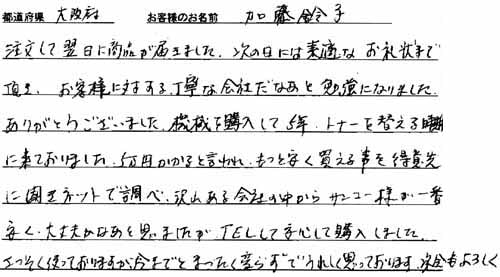 都道府県 大阪府 お客様のお名前 加藤鈴子
注文して翌日に商品が届きました。次の日には素適なお礼状まで
頂き、お客様に対する丁寧な会社だなあと勉強になりました。
ありがとうございました。機械を購入して5年、トナーを替える時期
に来ておりました。5万円かかると言われ、もっと安く買える事を得意先
に聞きネットで調べ、沢山ある会社の中からサンコー様が一番
安く、大丈夫かなあと思いましたが、TELして安心して購入しました。
さっそく使っておりますが今までとまったく変らずでうれしく思っております。次回もよろしく